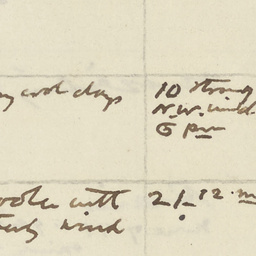 cool days
10 strong
N.W. wind
6 pm
cooler with
wind
21. 12. m